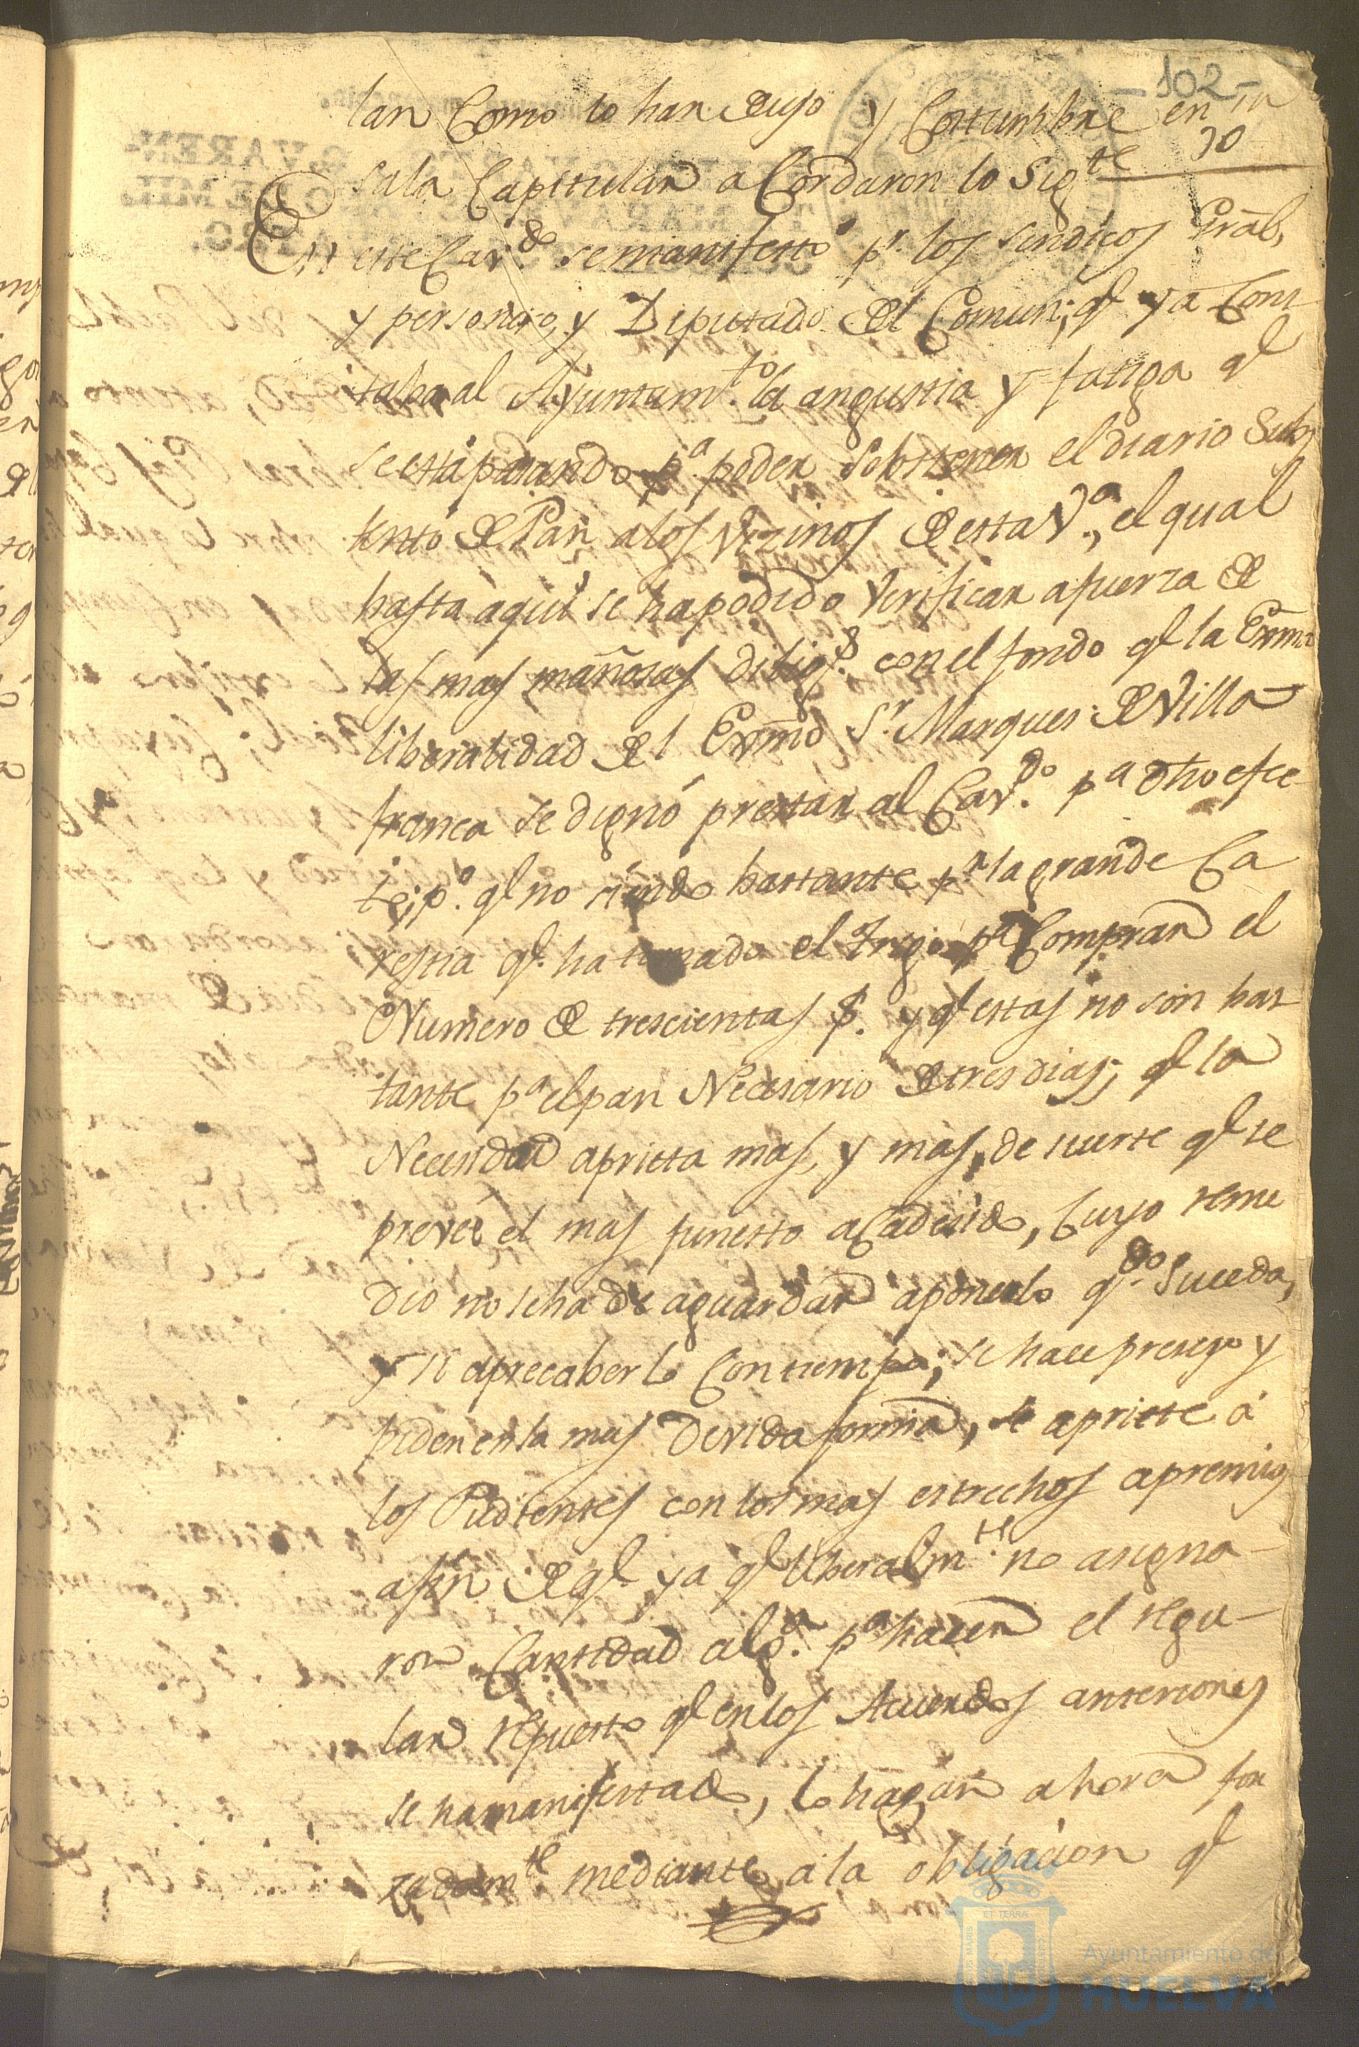 -102-
30
lan Como lo han de uso y Costumbre en su
sala Capitular acordaron lo Sigte
En este Cavdo se manifesto pr los sindicos Gral,
y personero, y Diputado del Comun; qe ya Cons-
taba al Ayuntamto la angustia y fatiga qe
se esta pasando pa poder Sobstener el diario Sus
tento de Pan a los Vezinos de esta Va, el qual
hasta aqui se ha podido Verificar a fuerza de
las mas mañosas diligs con el fondo qe la Exma
liberalidad del Exmo Sr Marques de Villa
franca se dignó prestar al Cavdo pa dho efec-
to; po qe no siendo bastante pr la grande Ca
restia qe ha tomado el trigo pa Comprar el
Numero de trescientas fs. y qe estas no son bas-
tante pa el pan Necesario de tres dias; qe la
Necesidad aprieta mas, y mas, de suerte qe se
preveé el mas funesto acadesido, Cuyo reme
dio no se ha de aguardar a ponerlo qdo Suceda,
y si a precaberlo Con tiempo; se hace preciso y
piden en la mas devida forma, se apriete á
los Pudientes con los mas estrechos apremios
a fin de qe ya qe liberalmte no asigna-
ron Cantidad alga pa hacer el regu-
lar repuesto qe en los Acuerdos anteriores
se ha manifestado, lo hagan ahora for
zadamte mediante a la obligacion qe
Ayuntamiento de
HUELVA